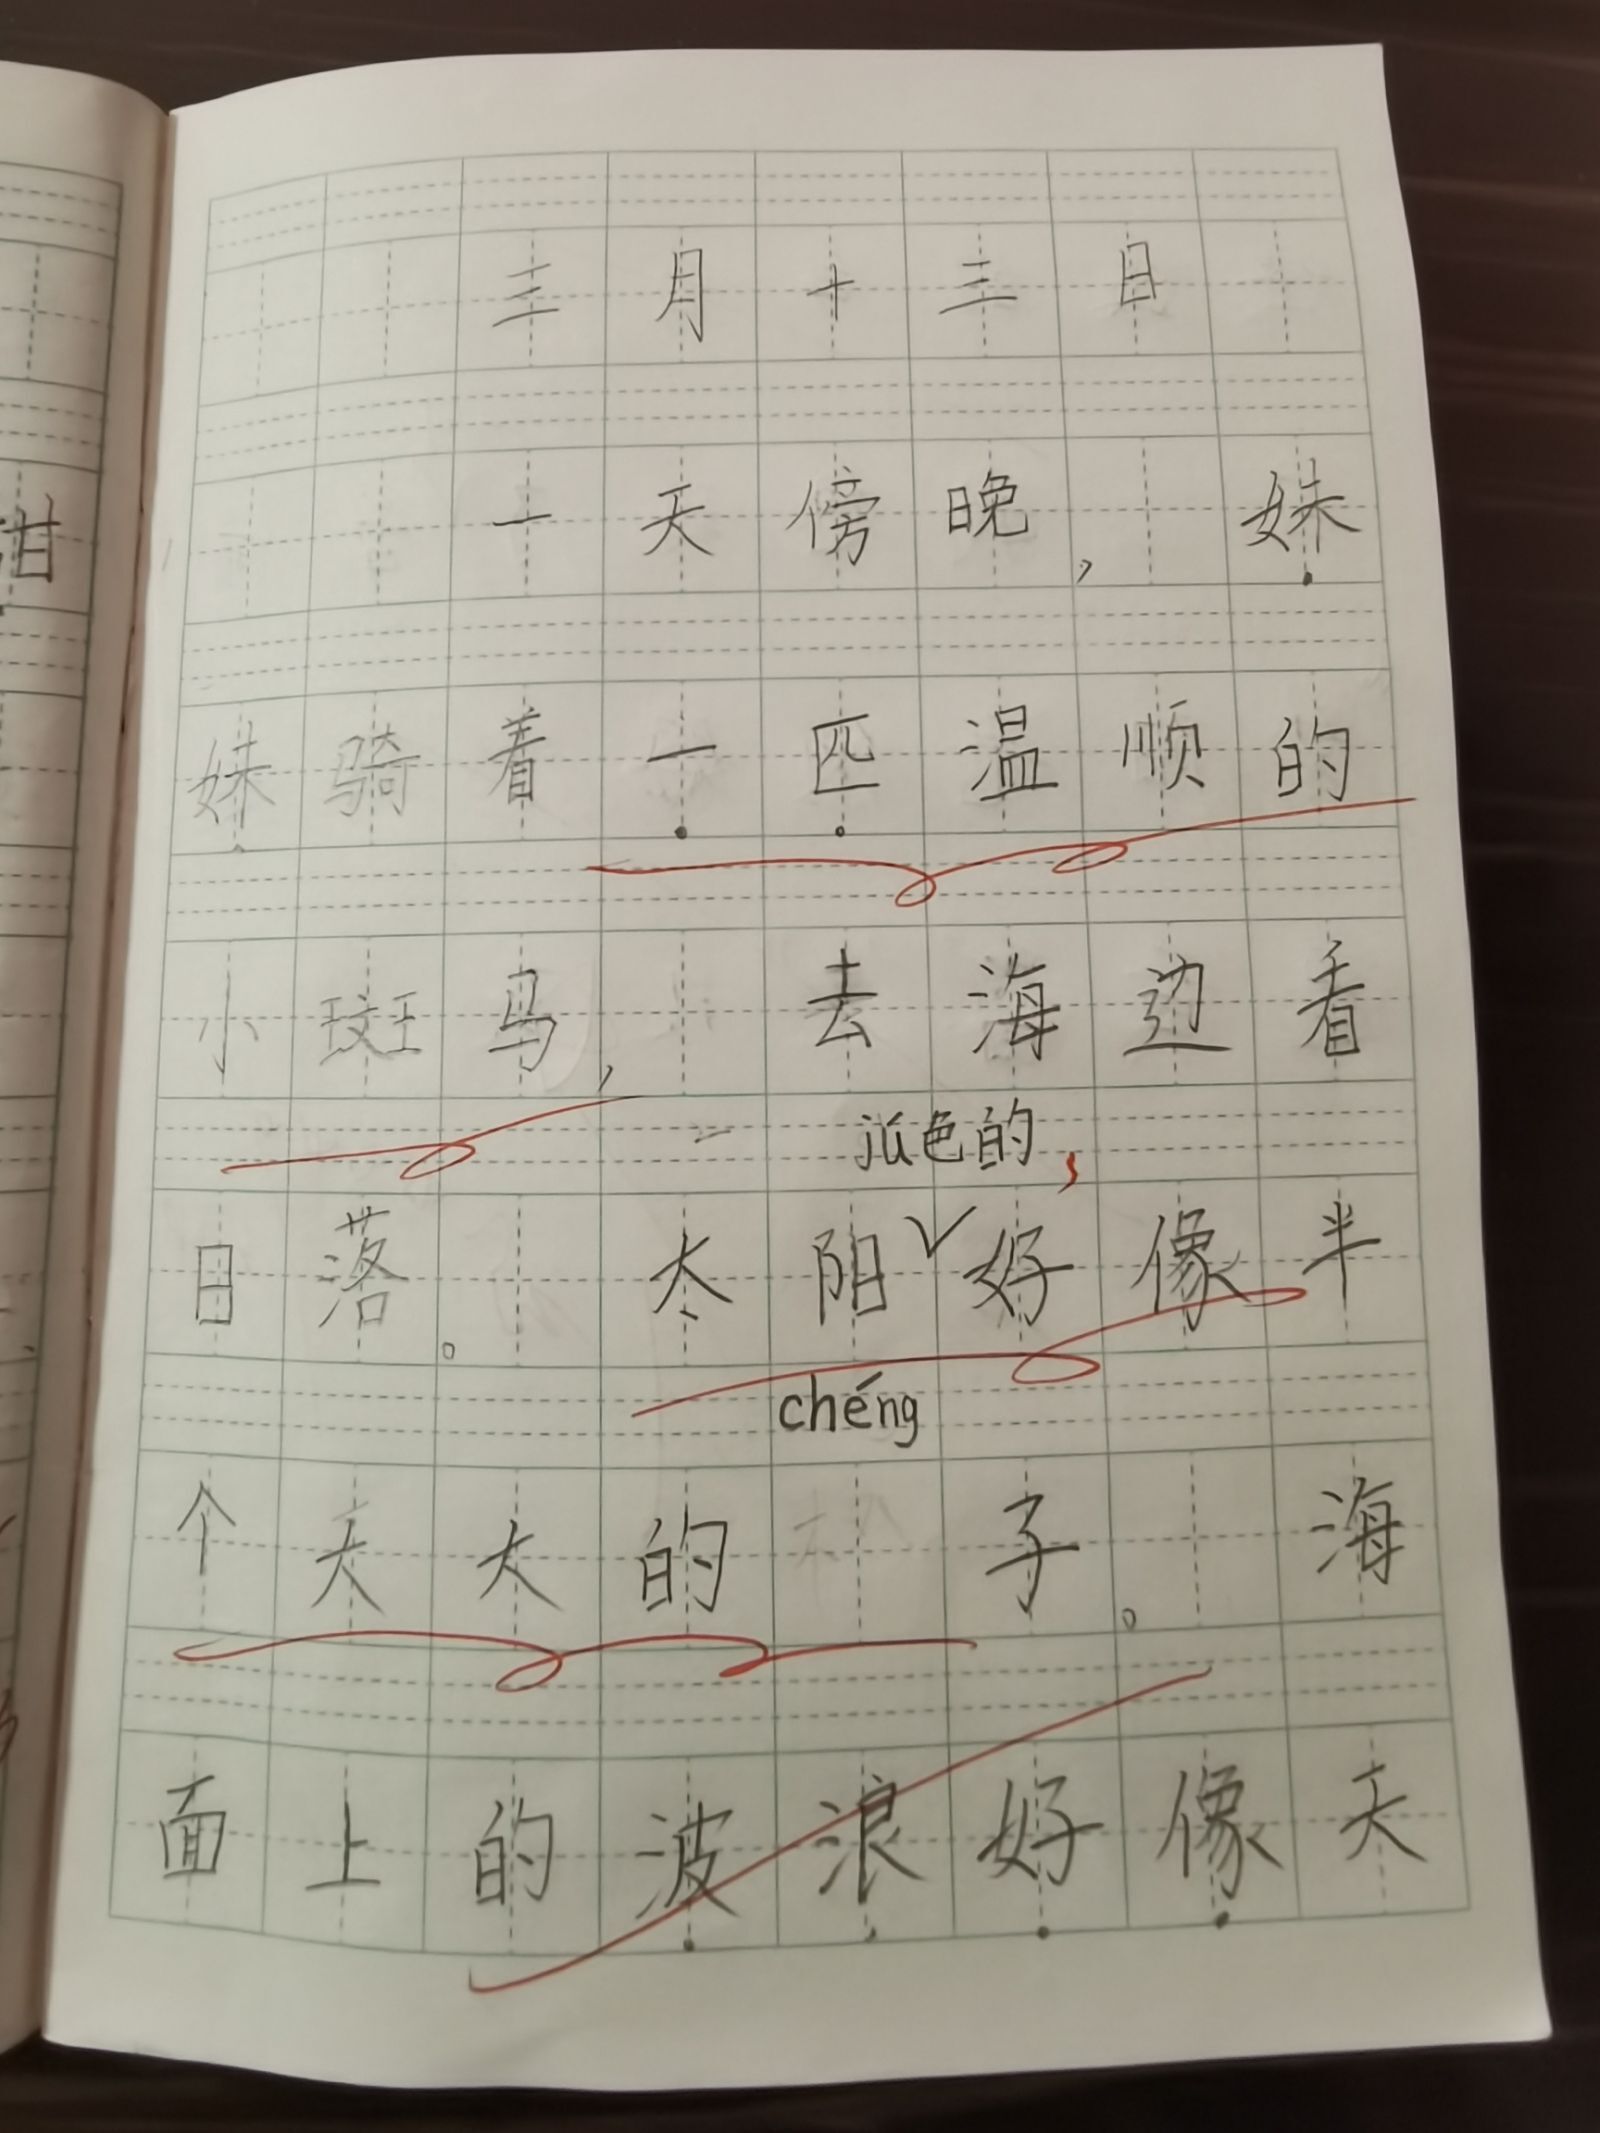 三月十三日
一天傍晚，妹
妹骑着一匹温顺的
小斑马，去海边看
jú色的，
日落。太阳好像半
chéng
个大大的子。海
面上的波浪好像天
甘